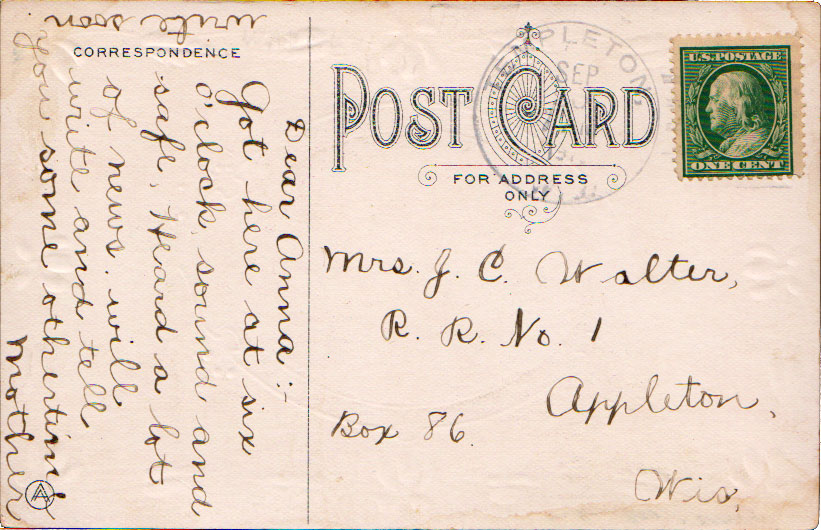 CORRESPONDENCE
POST CARD
FOR ADDRESS
ONLY
TEMPLETON,
SEP
WIS.
U.S. POSTAGE
ONE CENT
Dear Anna :-
Got here at six
o'clock, sound and
safe. Heard a lot
of news. will
write and tell
you some othertim
Mother
write soon
Mrs. J. C. Walter,
R. R. No. 1
Appleton,
Box 86.
Wis,
A